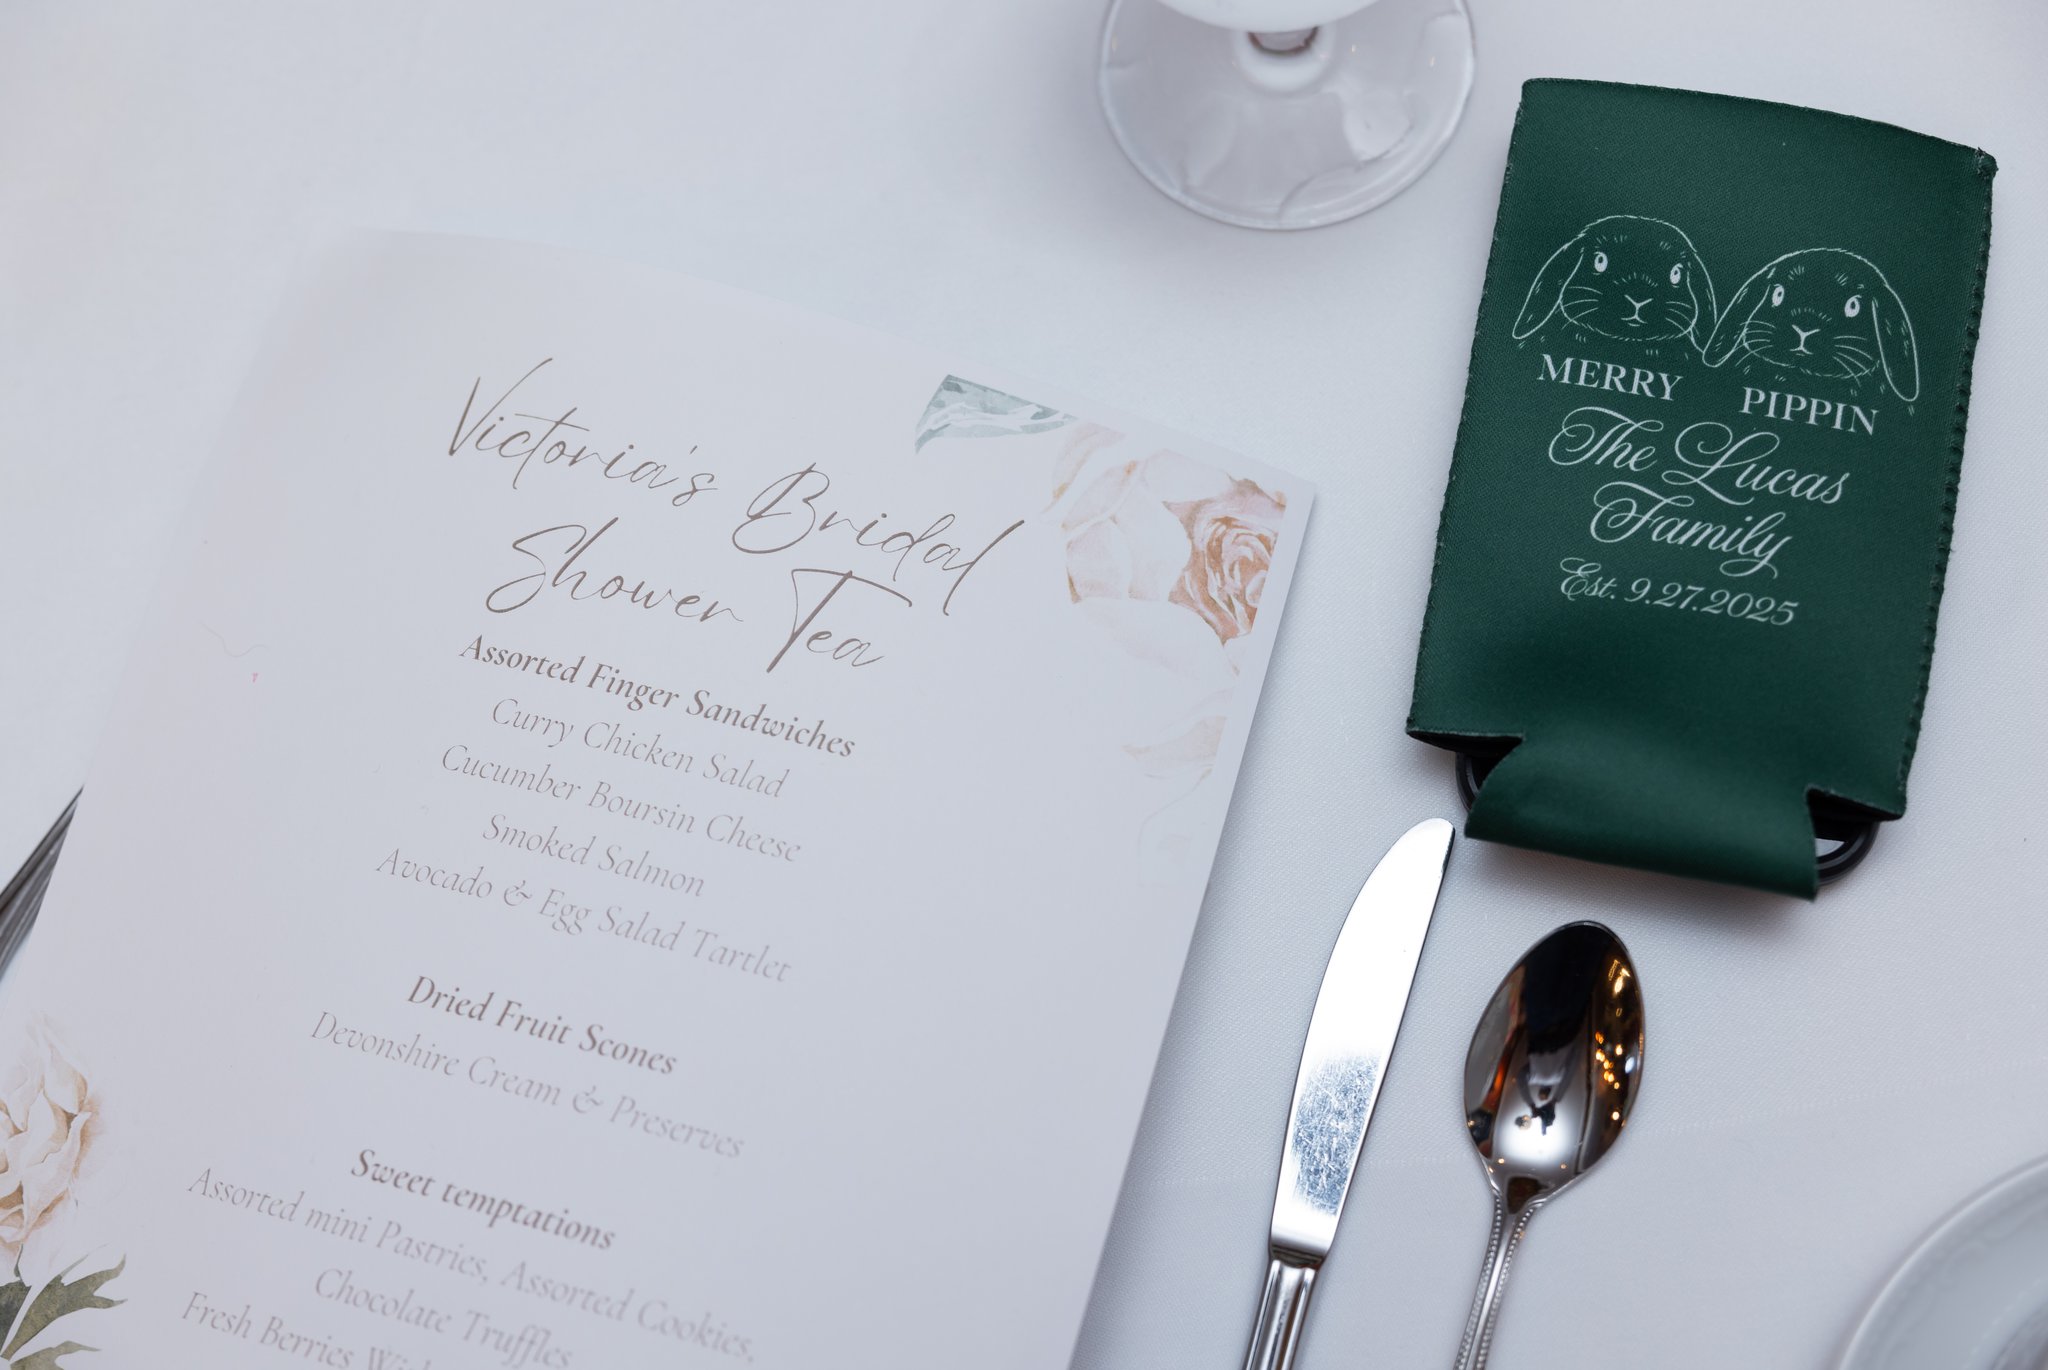 Victoria's Bridal
Shower Tea
Assorted Finger Sandwiches
Curry Chicken Salad
Cucumber Boursin Cheese
Smoked Salmon
Avocado & Egg Salad Tartlet
Dried Fruit Scones
Devonshire Cream & Preserves
Sweet temptations
Assorted mini Pastries, Assorted Cookies,
Chocolate Truffles
Fresh Berries
MERRY PIPPIN
The Lucas
Family
Est. 9.27.2025